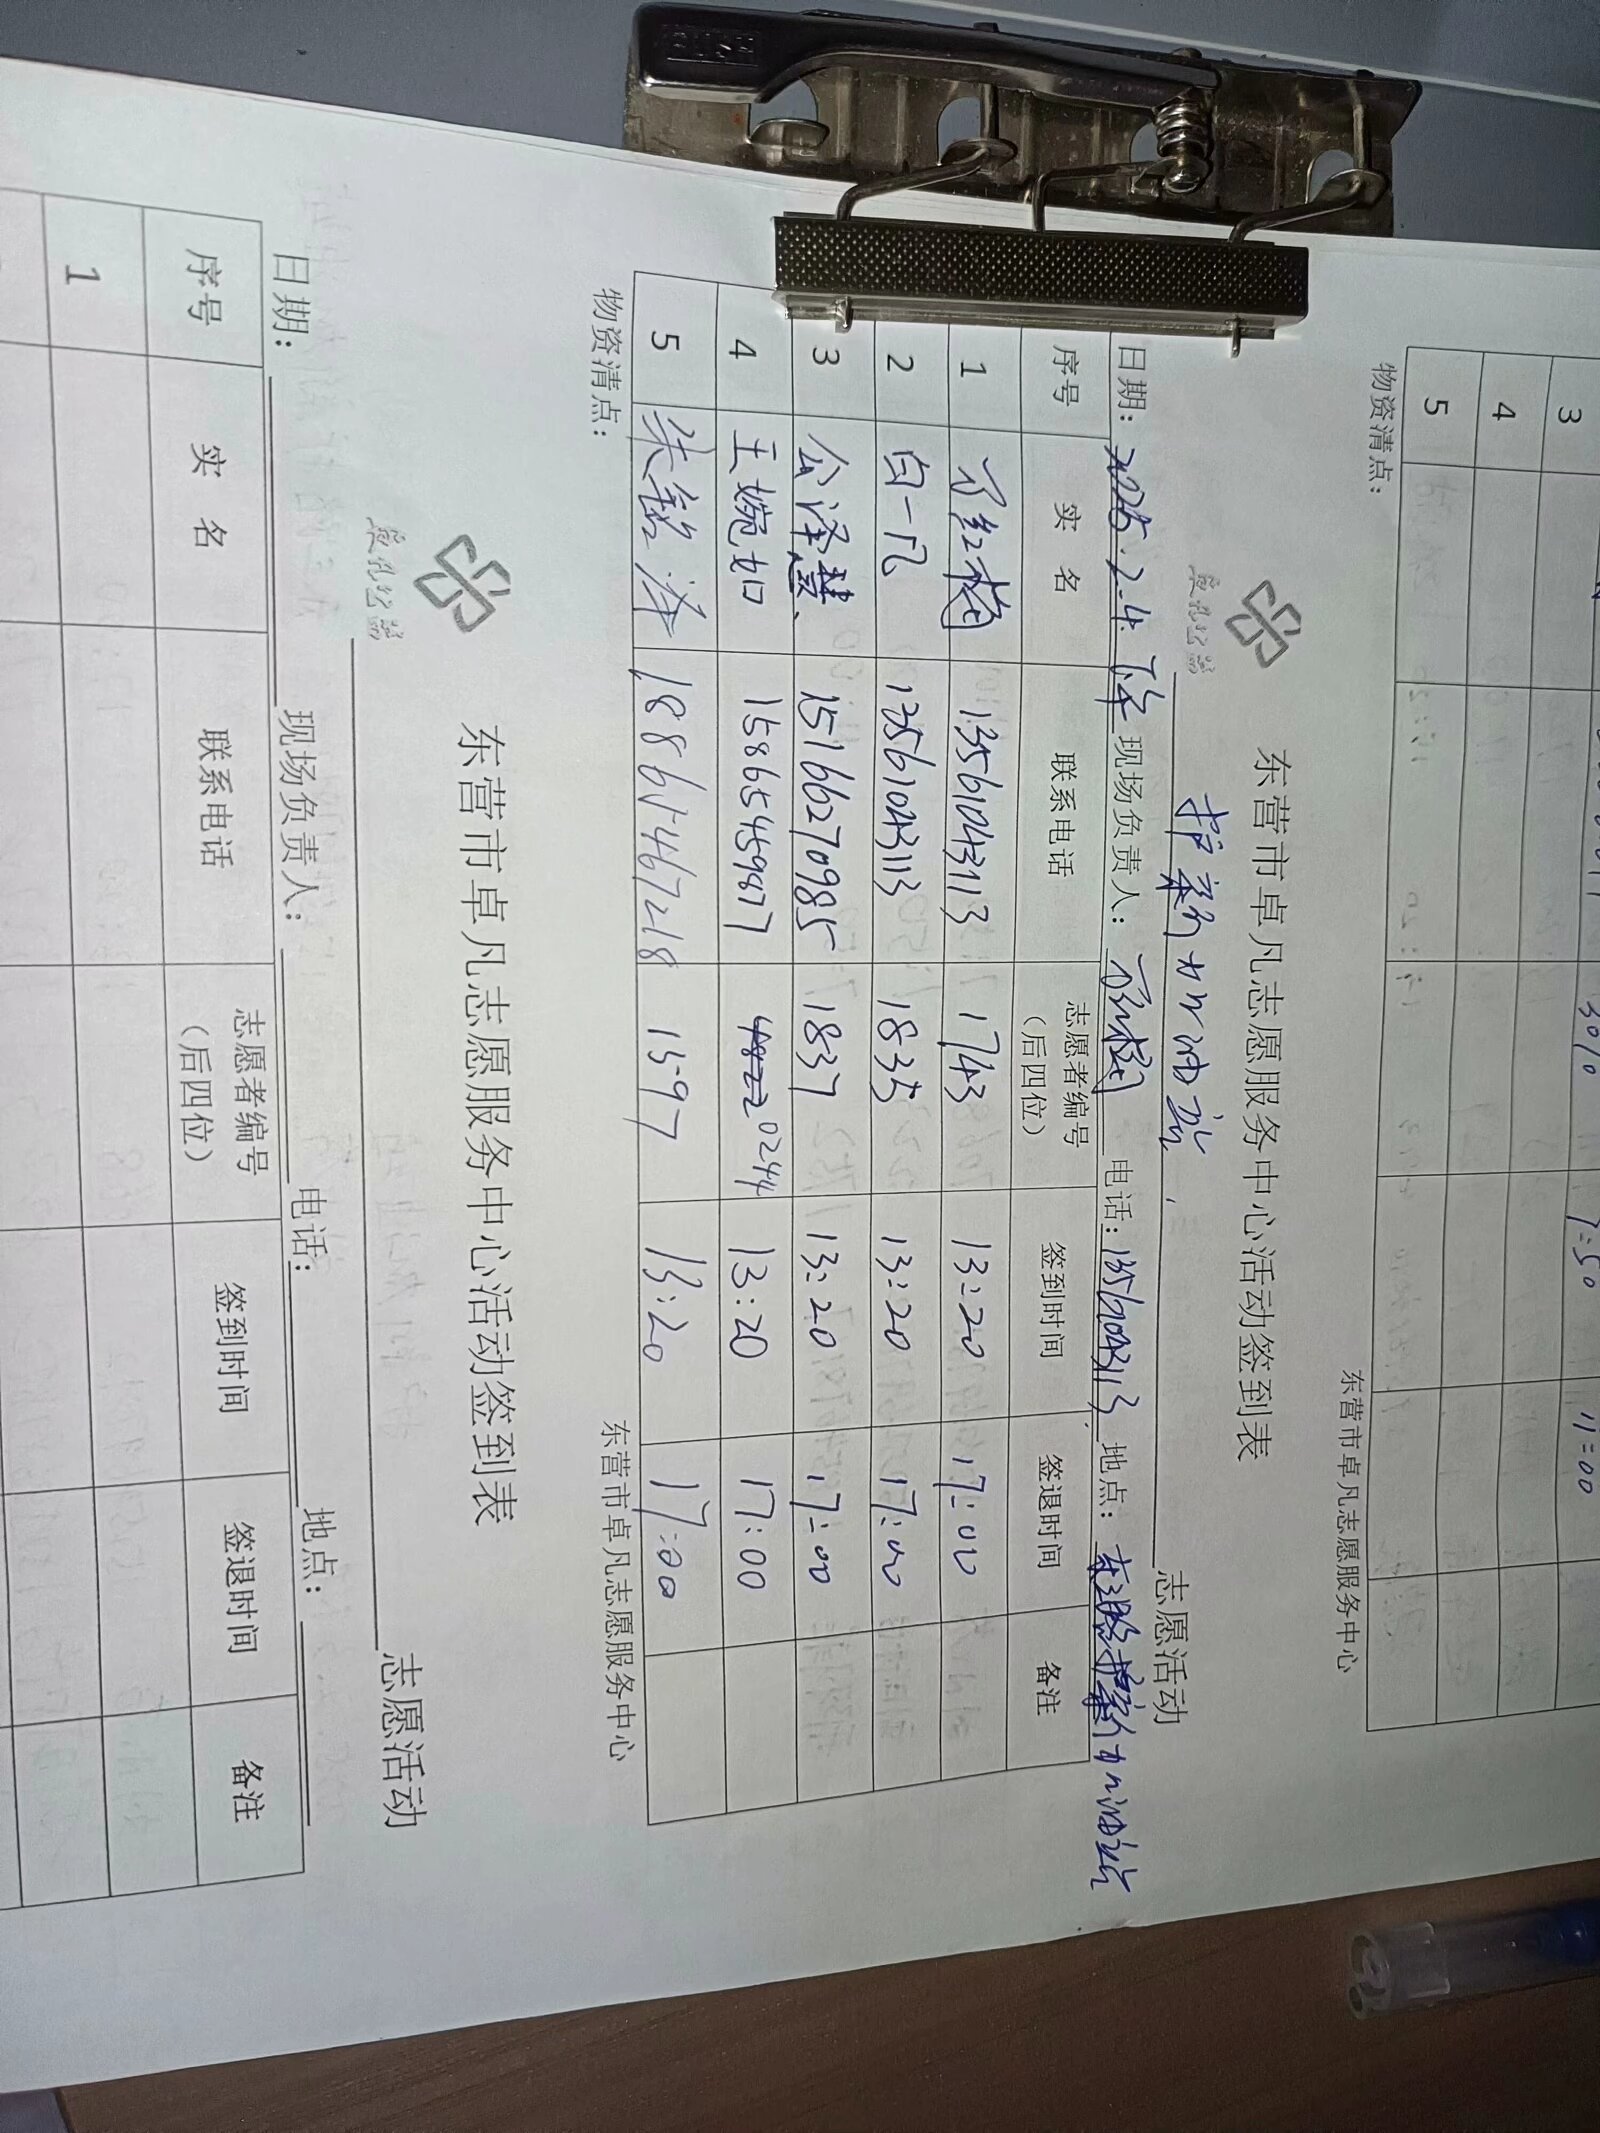 3 3010 7:50 11:00
4
5
物资清点： 东营市卓凡志愿服务中心
益凡公益
东营市卓凡志愿服务中心活动签到表
护新加油站 志愿活动
日期：2026.2.4.下午 现场负责人： 电话：13561043113 地点：护新加油站
序号 实 名 联系电话 志愿者编号（后四位） 签到时间 签退时间 备注
1 红梅 13561043113 1743 13:20 17:00
2 白一凡 13561043113 1835 13:20 17:00
3 公泽慧 15166270985 1837 13:20 17:00
4 王婉如 15865459877 0244 13:20 17:00
5 铭泽 18865467218 1597 13:20 17:00
物资清点： 东营市卓凡志愿服务中心
东营市卓凡志愿服务中心活动签到表
志愿活动
日期： 现场负责人： 电话： 地点：
序号 实 名 联系电话 志愿者编号（后四位） 签到时间 签退时间 备注
1